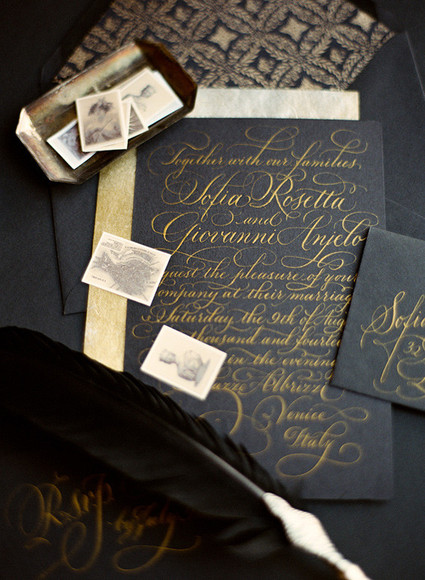 Together with our families,
Sofia Rosetta
and
Giovanni Anjelo
quest the pleasure of your
ompany at their marriag
Saturday the 9th of Aug
thousand and fourtee
in the evening
azzo Albrizzi
Venice
Italy
Sofia
32
Rsvp
by July